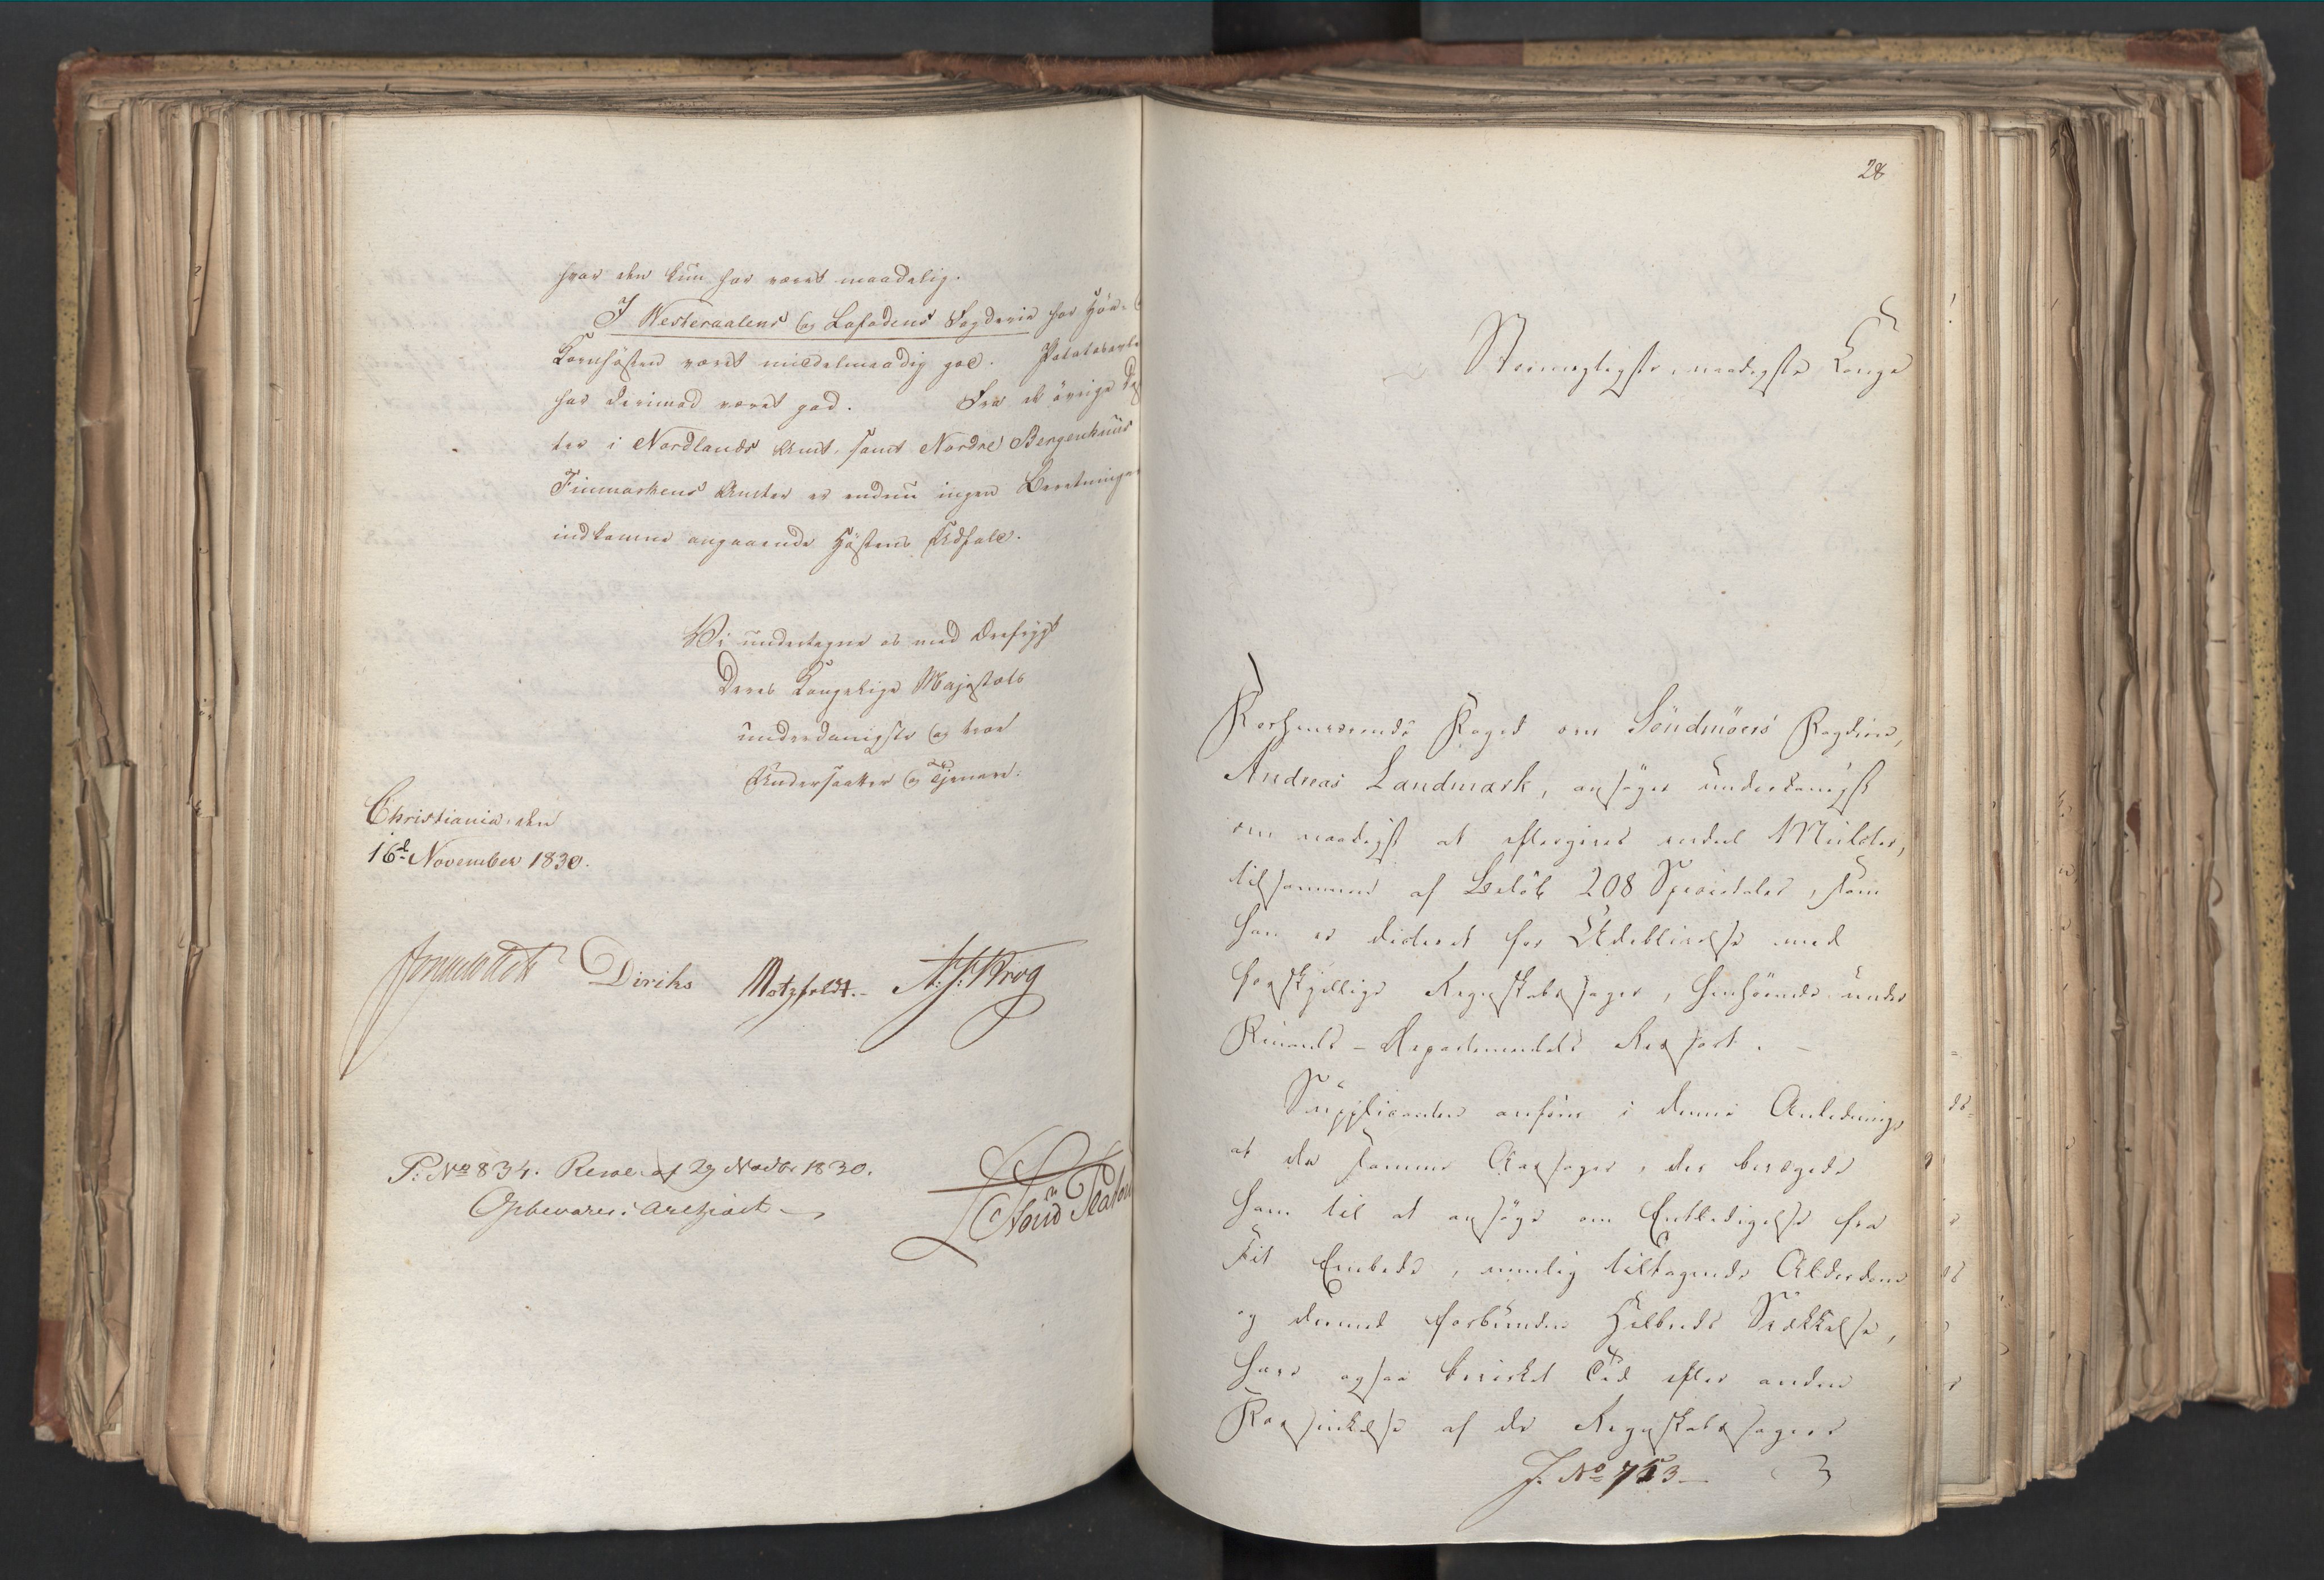 hvor den kun har været maadelig.
I Westeraalens og Lofodens Fogderie har Höe-
Kornhösten været middelmaadig god. Potatosavle
har derimod været god. Fra de övrige Dis
ter i Nordlands Amt, samt Nordre Bergenhuus
Finmarkens Amter er endnu ingen Beretninger
indkomne angaaende Höstens Udfald.
Vi undertegne os med Ærefrygt
Deres Kongelige Majestæts
underdanigste og troe
Undersaatter og Tjenere:
Christiania, den
16d November 1830.
Diriks Motzfeldt. A. F. Krog
P: No 834. Resol: af 29 Novbr 1830.
Opbevares i Archivet
28
Stormægtigste, naadigste Konge!
Forhenværende Foged over Söndmöers Fogderie,
Andreas Landmark, ansöger underdanigst
om naadigst at eftergives endeel Mulcter,
tilsammen af Belöb 208 Speciedaler, som
han er dicteret for Udeblivelse med
forskjellige Regnskabssager, henhörende under
Finants-Departementets Ressort.
Supplicanten anförer i denne Anledning,
at de samme Aarsager, der bevægede
ham til at ansöge om Entledigelse fra
sit Embede, nemlig tiltagende Alderdom
og dermed forbunden Helbreds Svækkelse,
have ogsaa bevirket Tid efter anden
Forsinkelse af de Regnskabssager
J. No 753